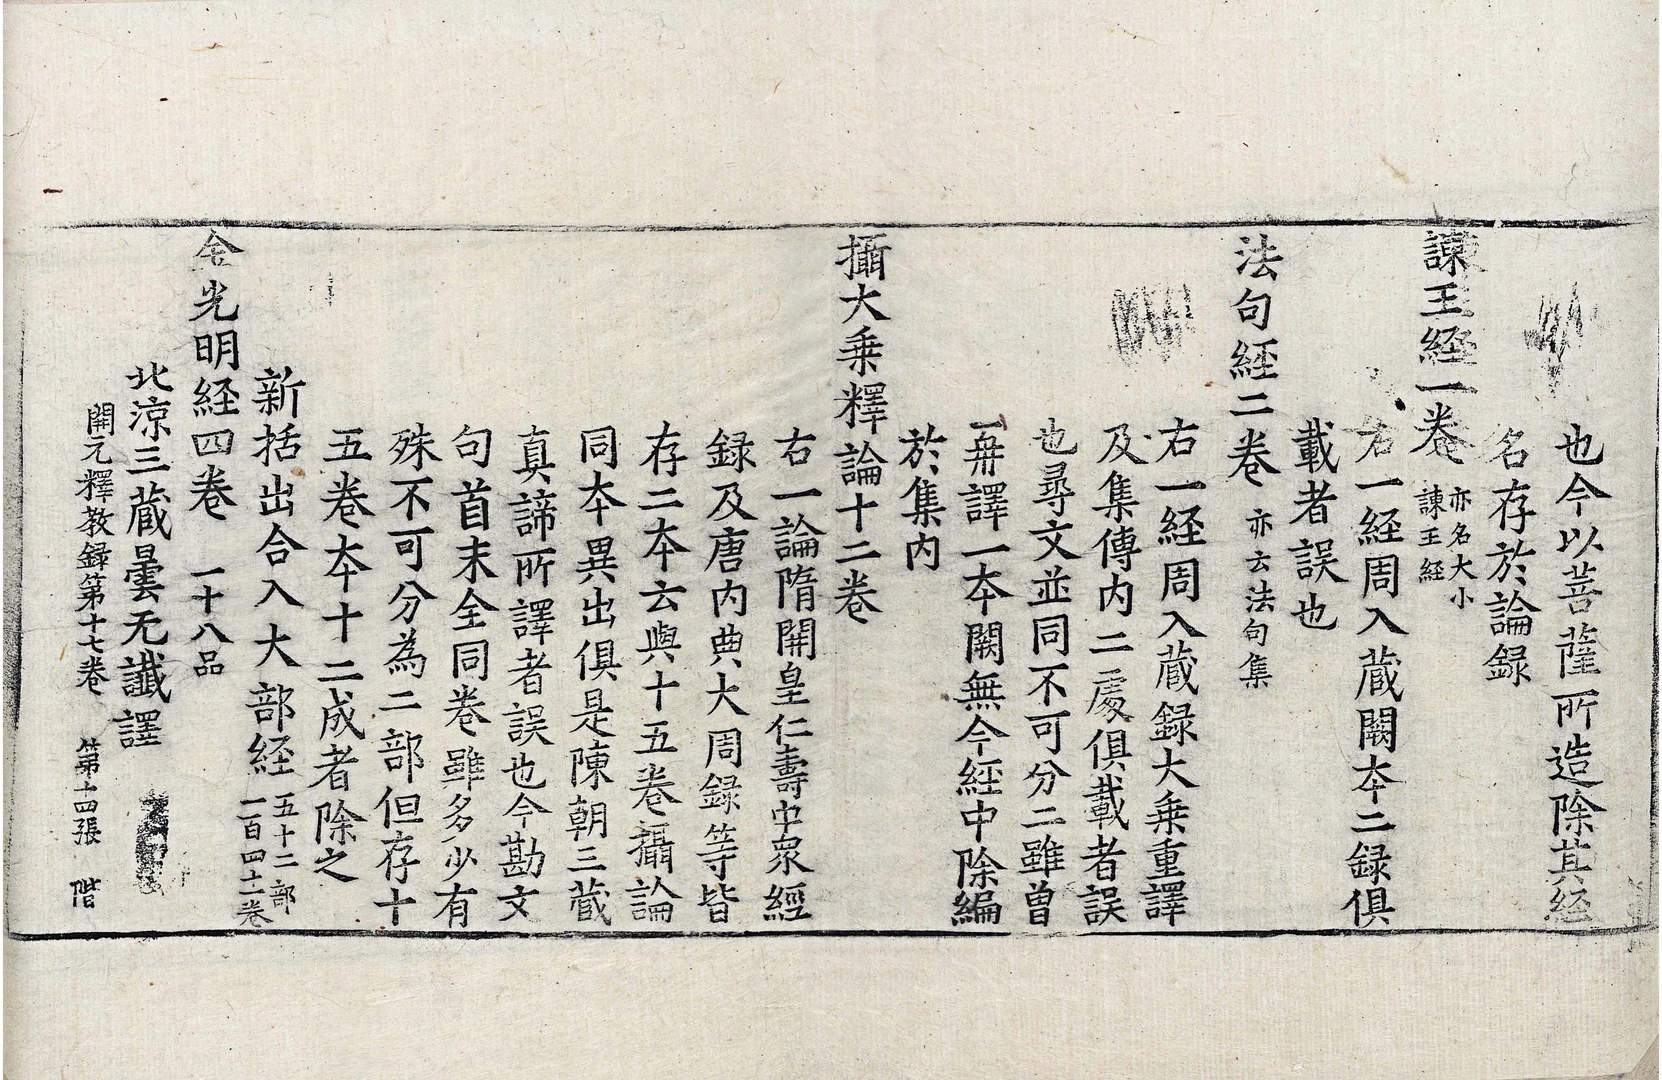 也今以菩薩所造除其経
名存於論録
諫王経一卷 亦名大小諫王経
右一経周入蔵闕本二録俱
載者誤也
法句経二卷 亦云法句集
右一経周入蔵録大乗重譯
及集傳内二處俱載者誤
也尋文並同不可分二雖曽
一再譯一本闕無今経中除編
於集内
攝大乗釋論十二卷
右一論隋開皇仁壽中衆經
録及唐内典大周録等皆
存二本云與十五卷攝論
同本異出俱是陳朝三蔵
真諦所譯者誤也今勘文
句首末全同卷雖多少有
殊不可分為二部但存十
五卷本十二成者除之
新括出合入大部経 五十二部二百四十一卷
金光明経四卷 一十八品
北涼三蔵曇无讖譯
開元釋教録第十七卷 第十四張 階